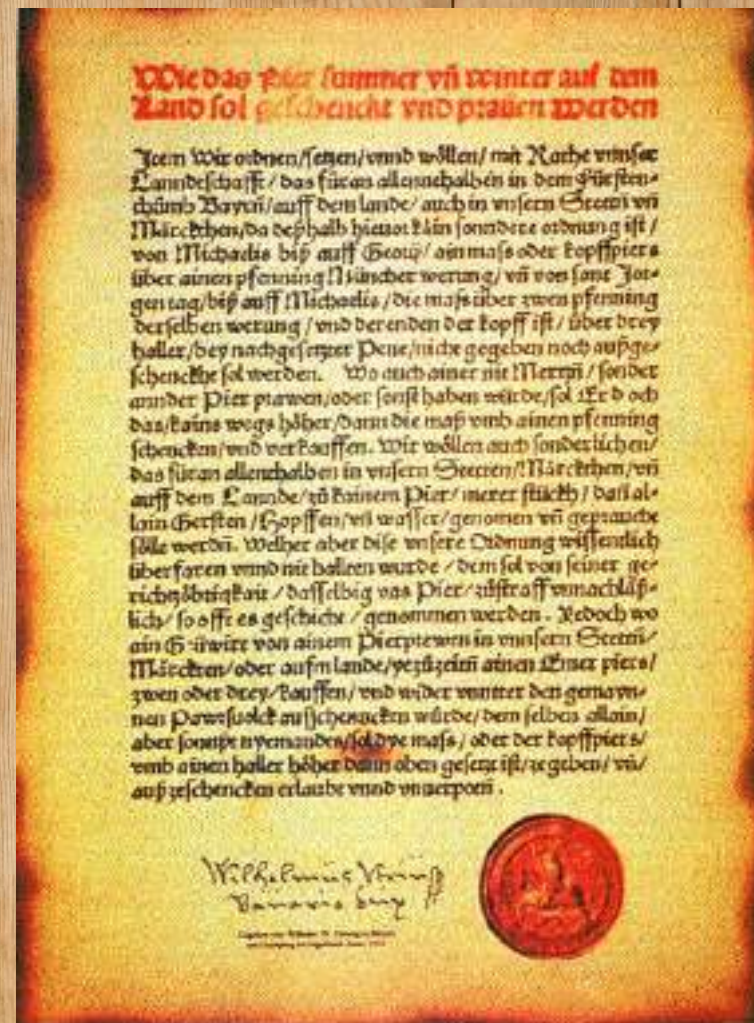 Wie das Pier summer vñ winter auf dem
Land sol geschenckt vnd prauen werden
Item Wir ordnen/setzen/vnnd wöllen/ mit Rathe vnnser
Lanndeschafft/ das füran allennthalben in dem Fürsten-
thůmb Bayrñ/auff dem lande/ auch in vnsern Stettñ vñ
Märckthen/da deßhalb hieuor kain sonndere ordnung ist /
von Michaelis biß auff Georij/ ain mass oder kopffpiers
über ainen pfenning Müncher werung/ vñ von sant Jor-
gen tag/biß auff Michaelis / die mass über zwen pfenning
derselben werung / vnd derenden der kopff ist / über drey
haller/bey nachgesetzter Pene/nicht gegeben noch außge-
schenckht sol werden. Wo auch ainer nit Mertzñ / sonder
annder Pier prawen/oder sonst haben würde/sol Er d och
das/kains wegs höher/dann die maß vmb ainen pfenning
schencken/vnd verkauffen. Wir wöllen auch sonderlichen/
das füran allenthalben in vnsern Stetten/Märckthen/vñ
auff dem Lannde/zů kainem Pier/ merer stückh / dañ al-
lain Gersten /Hopffen/vñ wasser/genomen vñ gepraucht
sölle werdñ. Welher aber dise vnsere Ordnung wissentlich
überfaren vnnd nit hallten wurde / dem sol von seiner ge-
richtzöbrigkait / dasselbig vas Pier/zůstraff vnnachläß-
lich/ so offt es geschicht / genommen werden. Yedoch wo
ain G üwirt von ainem Pierprewen in vnnsern Stettñ/
Märckten/oder aufm lande/yezůzeitñ ainen Emer piers/
zwen oder drey/kauffen/ vnd wider vnnter den gemayn-
nen Pawrsuolck ausschenncken würde/ dem selben allain/
aber sonnst nyemandes/sol dye mass/ oder der kopffpiers/
vmb ainen haller höher dann oben gesetzt ist/ze geben/ vñ/
auß zeschencken erlaubt vnnd vnuerpotñ.
Wilhelmus